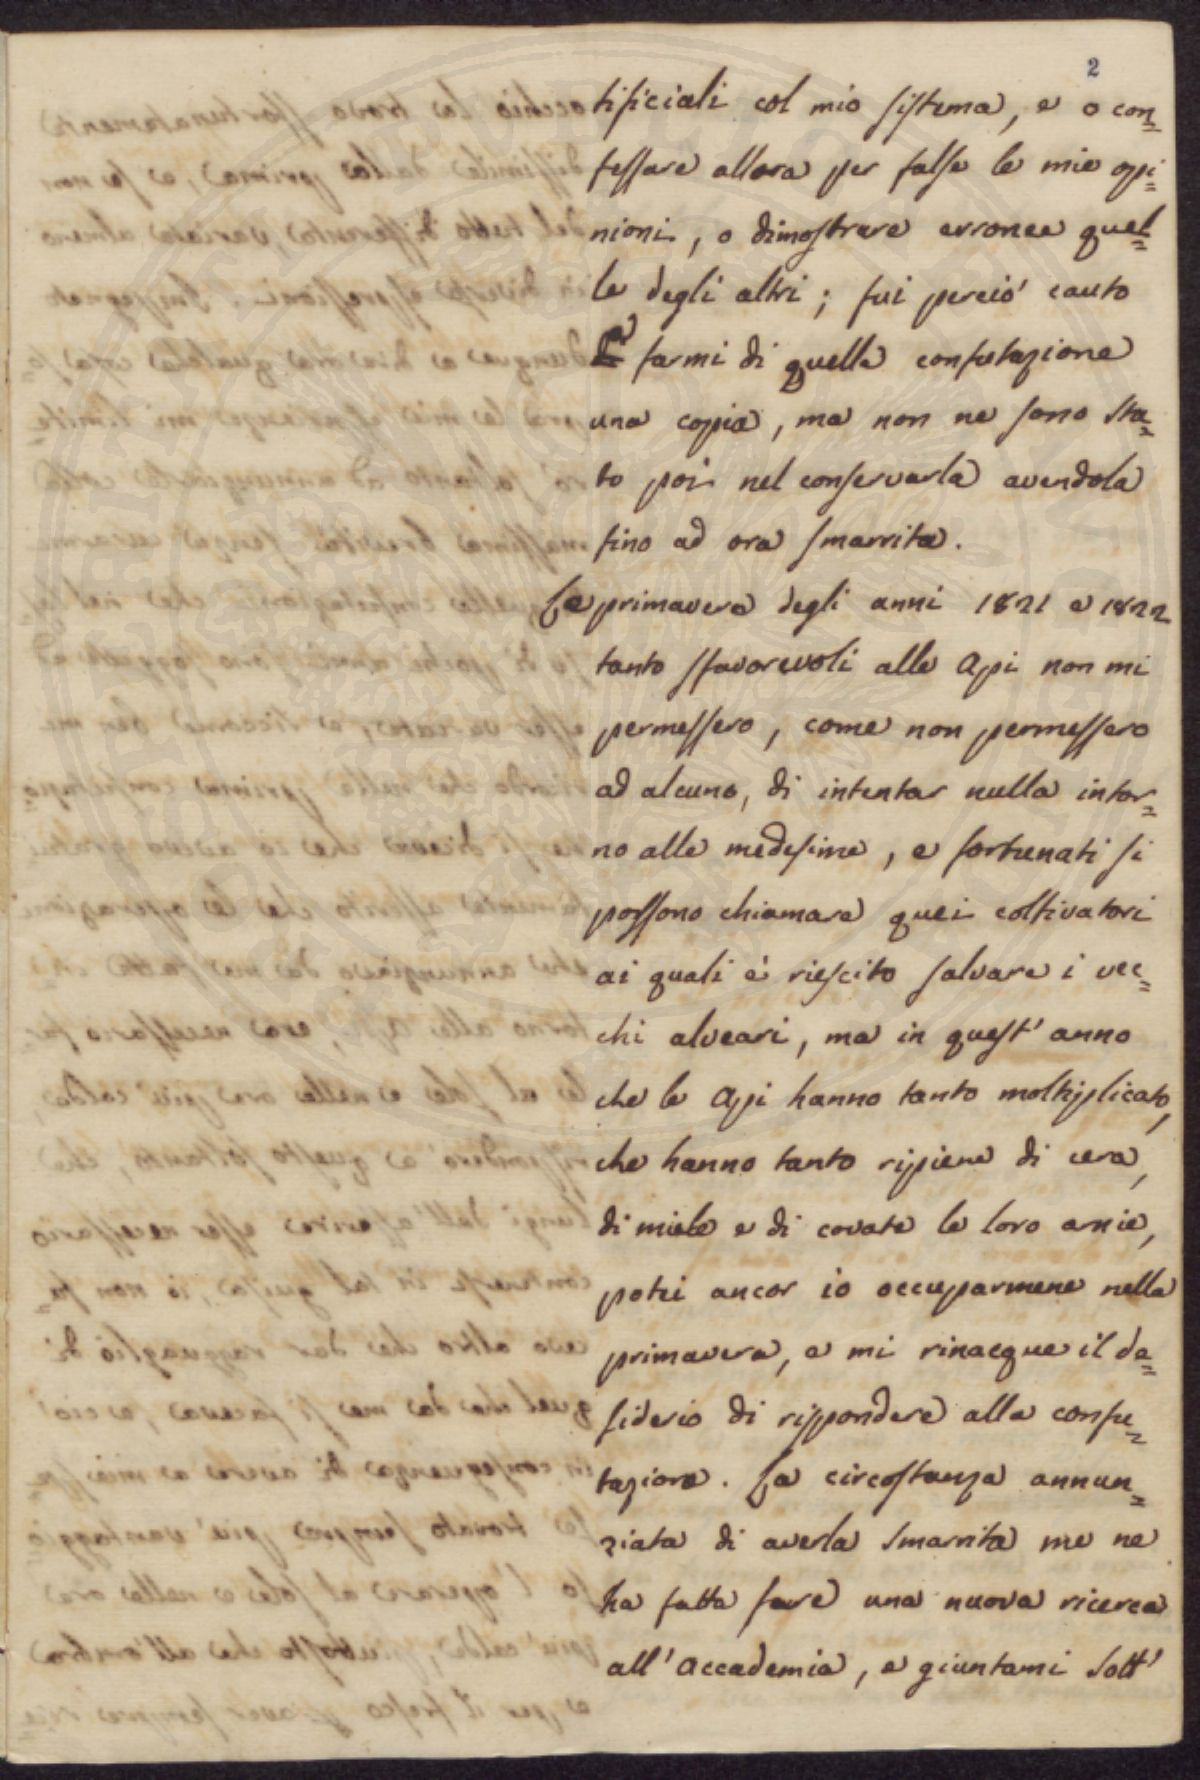 2
tificiali col mio sistema, e o con=
fessare allora per false le mie opi=
nioni, o dimostrare erronee quel=
le degli altri; fui perciò cauto
a farmi di quella confutazione
una copia, ma non ne sono sta=
to poi nel conservarla avendola
fino ad ora smarrita.
Le primavere degli anni 1821 e 1822
tanto sfavorevoli alle Api non mi
permessero, come non permessero
ad alcuno, di intentar nulla intor=
no alle medesime, e fortunati si
possono chiamare quei coltivatori
ai quali è riescito salvare i vec=
chi alveari, ma in quest' anno
che le Api hanno tanto moltiplicato,
che hanno tanto ripiene di cera,
di miele e di covate le loro arnie,
potei ancor io occuparmene nella
primavera, e mi rinacque il de=
siderio di rispondere alla confu=
tazione. La circostanza annun=
ziata di averla smarrita me ne
ha fatta fare una nuova ricerca
all' Accademia, e giuntami sott'